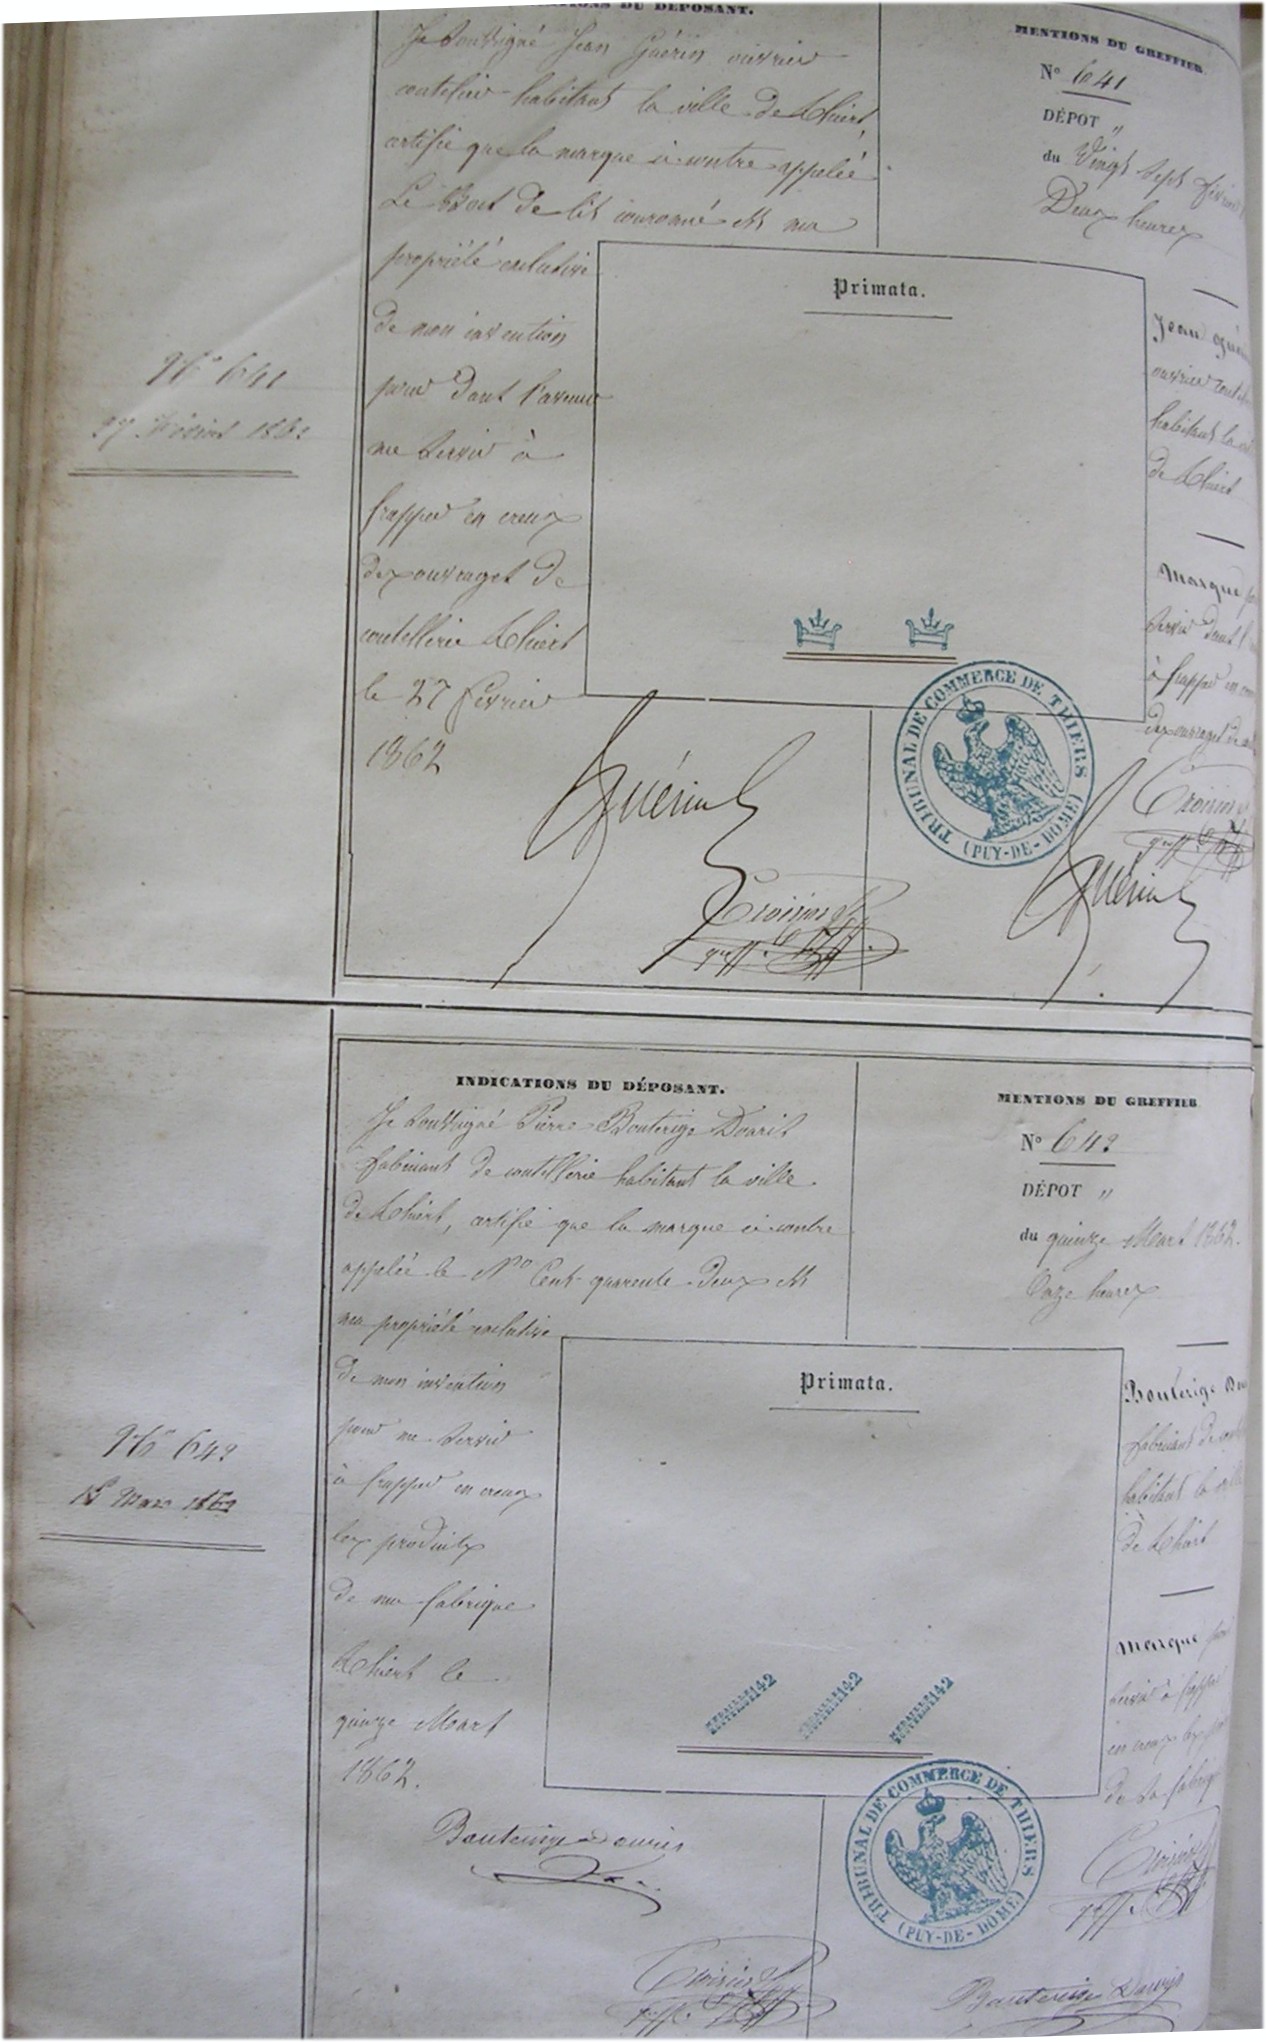 INDICATIONS DU DÉPOSANT.
Je soussigné Jean Guérin ouvrier
coutelier habitant la ville de Thiers,
certifie que la marque ci-contre appelée
Le Bout de lit couronné est ma
propriété exclusive
de mon invention
pour dans l'avenir
me servir à
frapper en creux
des ouvrages de
coutellerie Thiers
le 27 février
1862
Guérin
Croisier
greff.
N° 641
27 Février 1862
MENTIONS DU GREFFIER
N° 641
DÉPOT "
du Vingt sept février
Deux heures
Primata.
Jean Guérin
ouvrier
habitant la
de Thiers
Marque
servir dans l'
à frapper en
des ouvrages de
TRIBUNAL DE COMMERCE DE THIERS
(PUY-DE-DOME)
Croisier
greff.
Guérin
INDICATIONS DU DÉPOSANT.
Je soussigné Pierre Bouterige Douris
fabricant de coutellerie habitant la ville
de Thiers, certifie que la marque ci-contre
appelée le N° Cent quarente deux est
ma propriété exclusive
de mon invention
pour me servir
à frapper en creux
les produits
de ma fabrique
Thiers le
quinze Mars
1862.
Bouterige Douris
Croisier
greff.
N° 642
15 Mars 1862
MENTIONS DU GREFFIER
N° 642
DÉPOT "
du quinze Mars 1862.
Onze heures
Primata.
MEDAILLE 142
MEDAILLE 142
MEDAILLE 142
Bouterige
fabricant de
habitant la ville
de Thiers
Marque pour
servir à frapper
en creux les
de sa fabrique
TRIBUNAL DE COMMERCE DE THIERS
(PUY-DE-DOME)
Croisier
greff.
Bouterige Douris